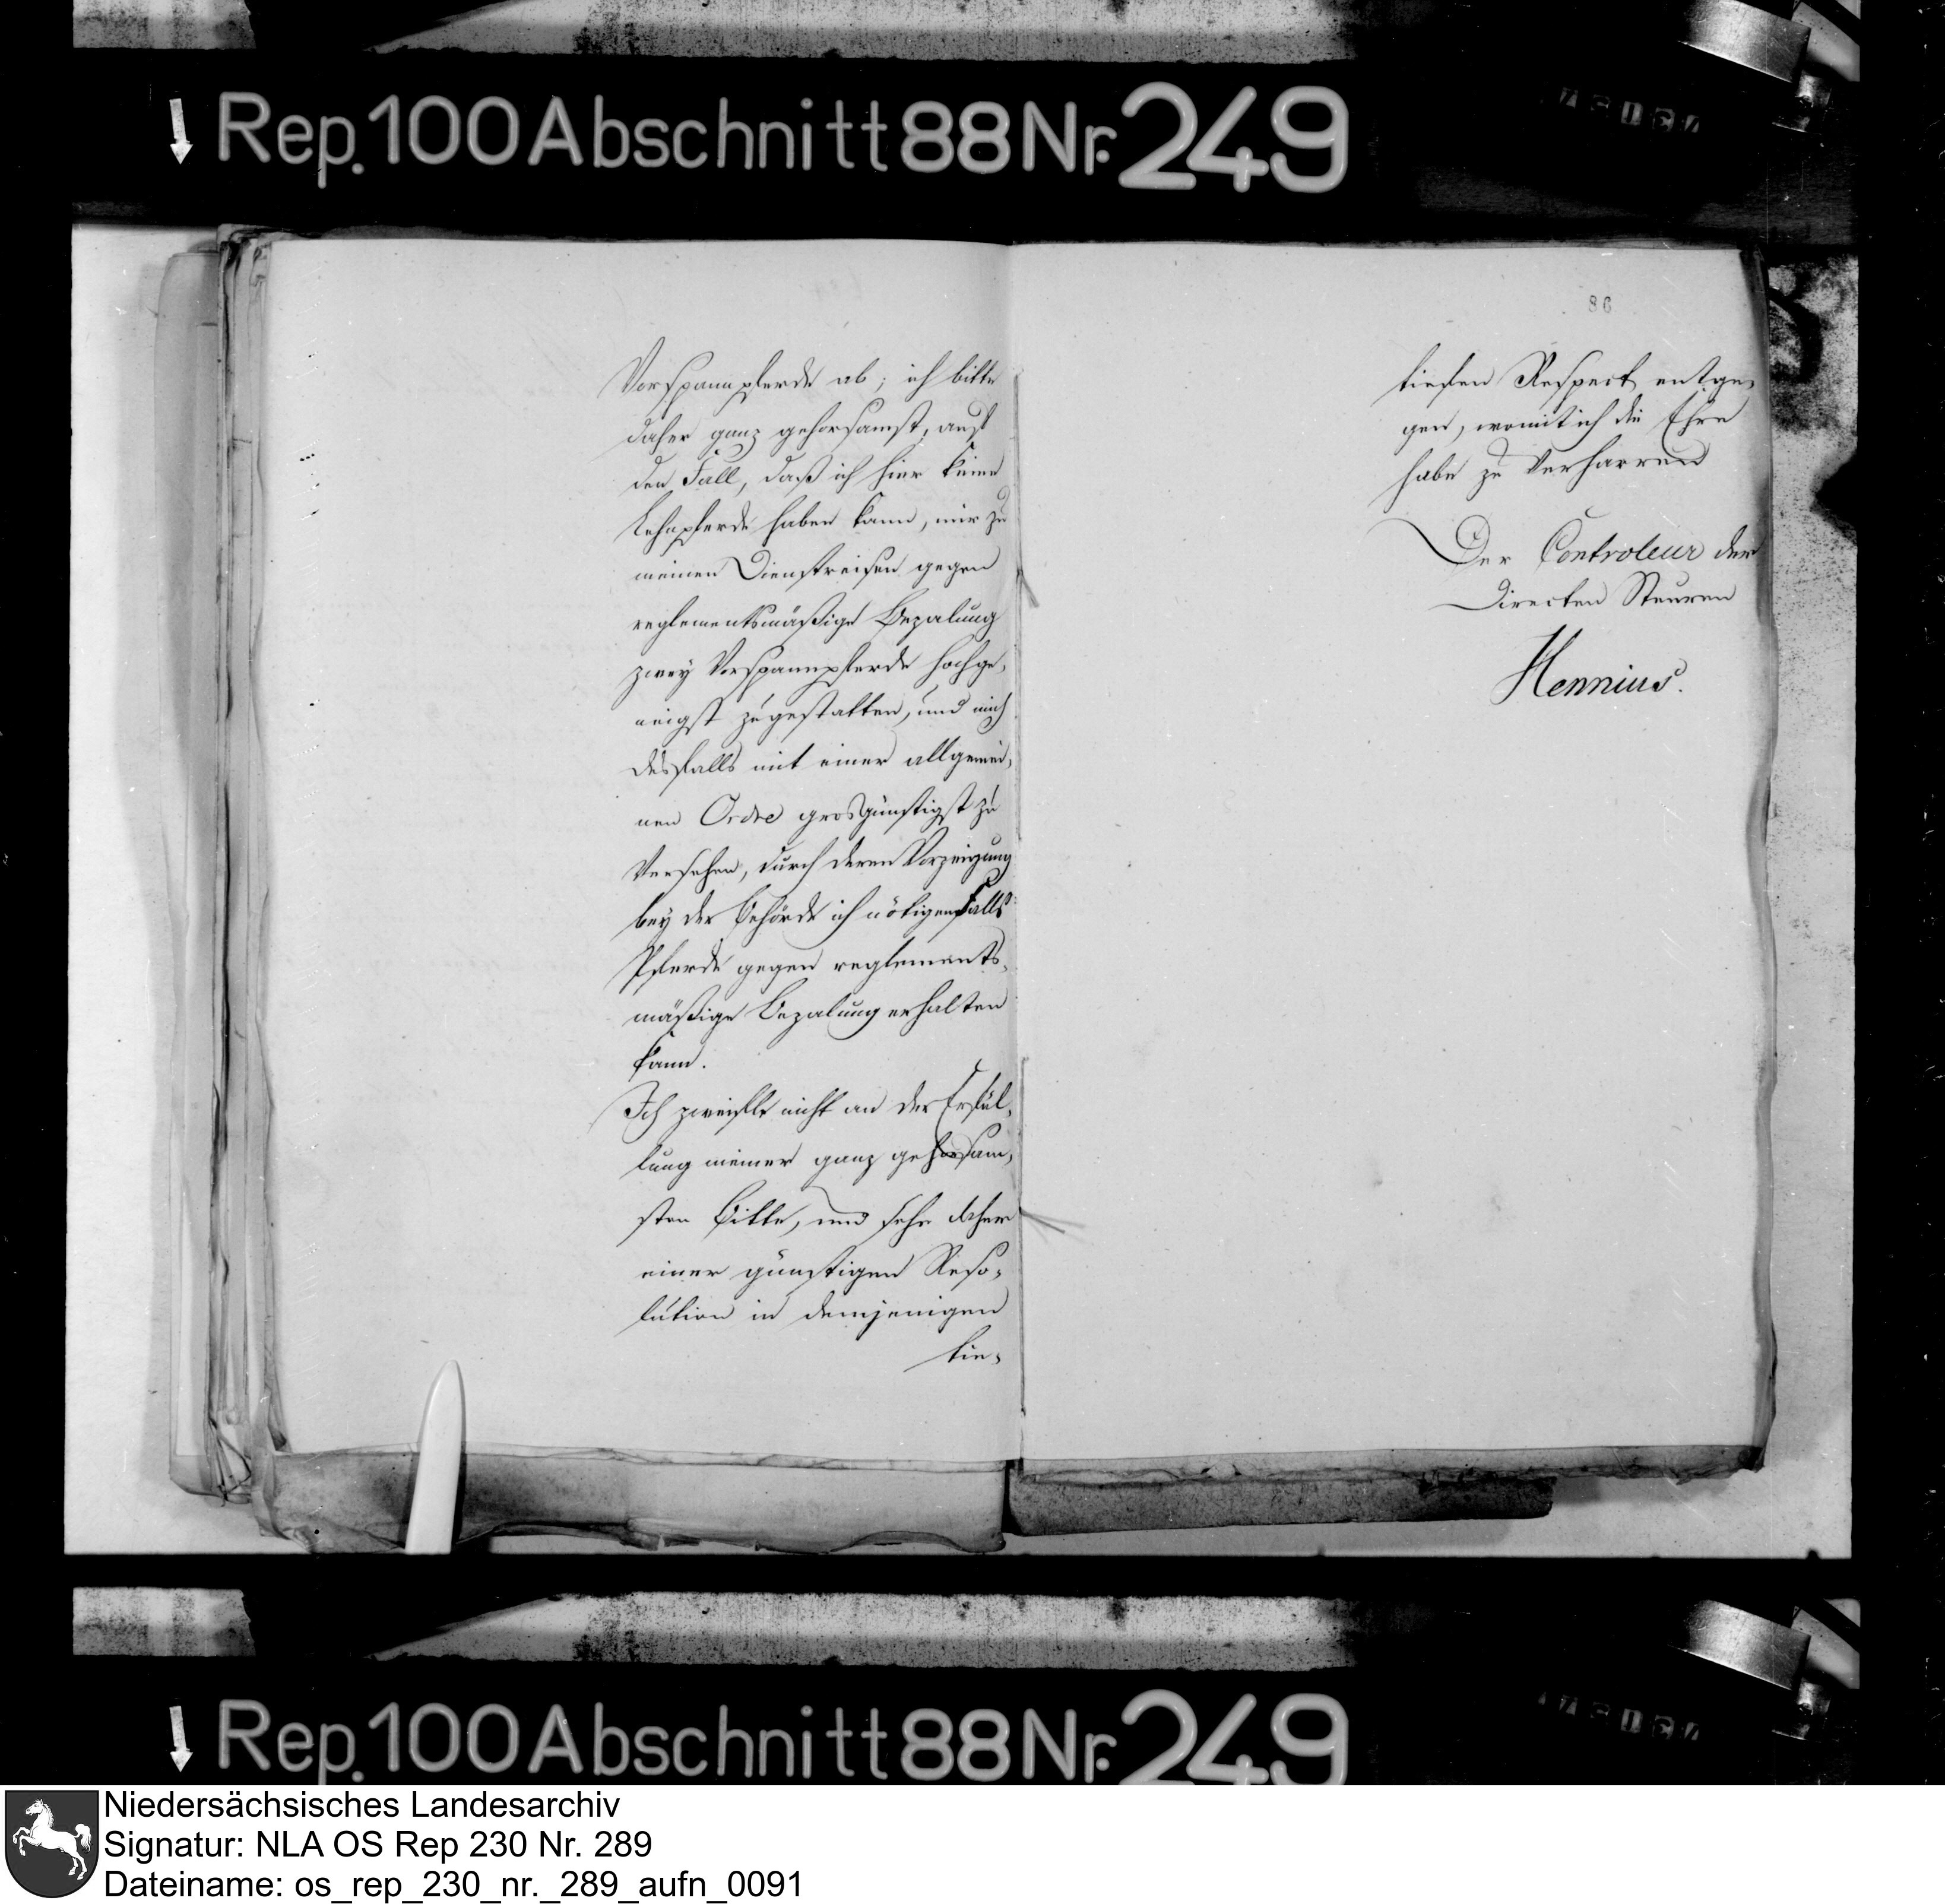 Rep. 100 Abschnitt 88 Nr. 249
Vorspannpferde ab; ich bitte
daher ganz gehorsamst, auf
den Fall, daß ich hier keine
Lehnpferde haben kann, mir zu
meinen Dienstreisen gegen
reglementsmäßige Bezalung
zwey Vorspannpferde hochge-
neigst zugestatten, und mich
desfalls mit einer allgemei-
nen Ordre grosgünstigst zu
versehen, durch deren Vorzeigung
bey der Behörde ich nötigenfalls
Pferde gegen reglements-
mäßige Bezalung erhalten
kann.
Ich zweifle nicht an der Erfül-
lung meiner ganz gehorsam-
sten Bitte, und sehe daher
einer günstigen Reso-
lution in demjenigen
tie-
86
tiefen Respect entge-
gen, womit ich die Ehre
habe zu verharren
Der Controleur der
Directen Steuren
Hennius.
Rep. 100 Abschnitt 88 Nr. 249
Niedersächsisches Landesarchiv
Signatur: NLA OS Rep 230 Nr. 289
Dateiname: os_rep_230_nr._289_aufn_0091